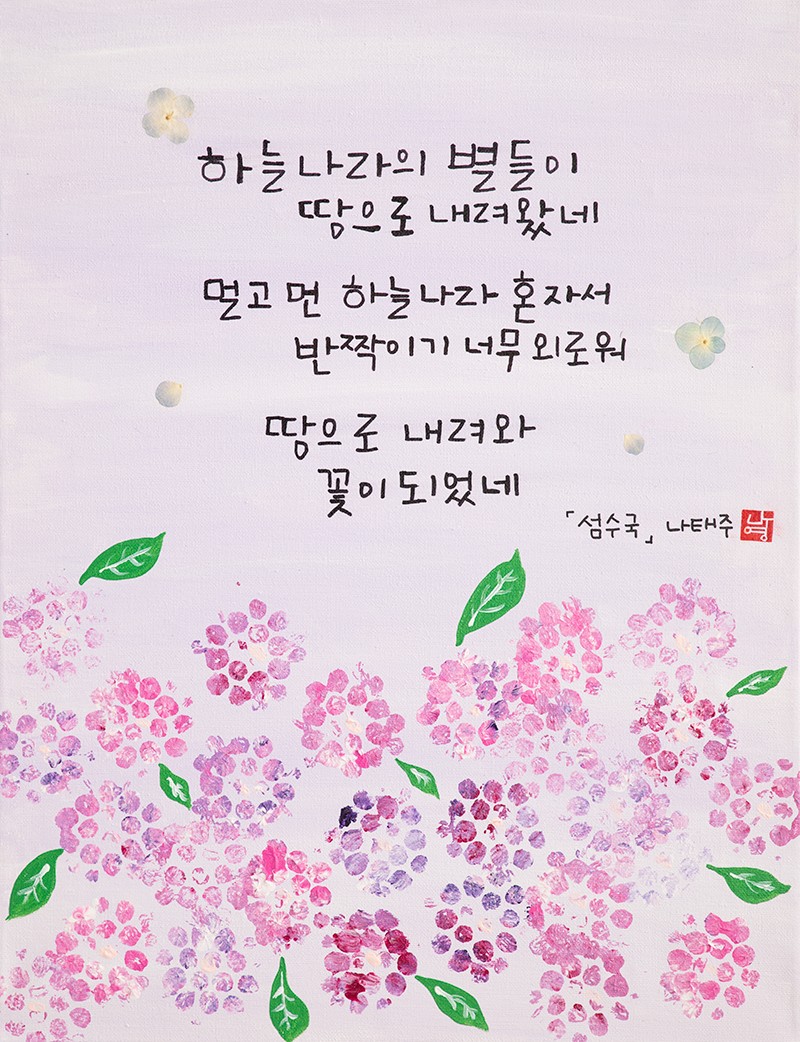 하늘나라의 별들이
땅으로 내려왔네
멀고 먼 하늘나라 혼자서
반짝이기 너무 외로워
땅으로 내려와
꽃이 되었네
「섬수국」 나태주